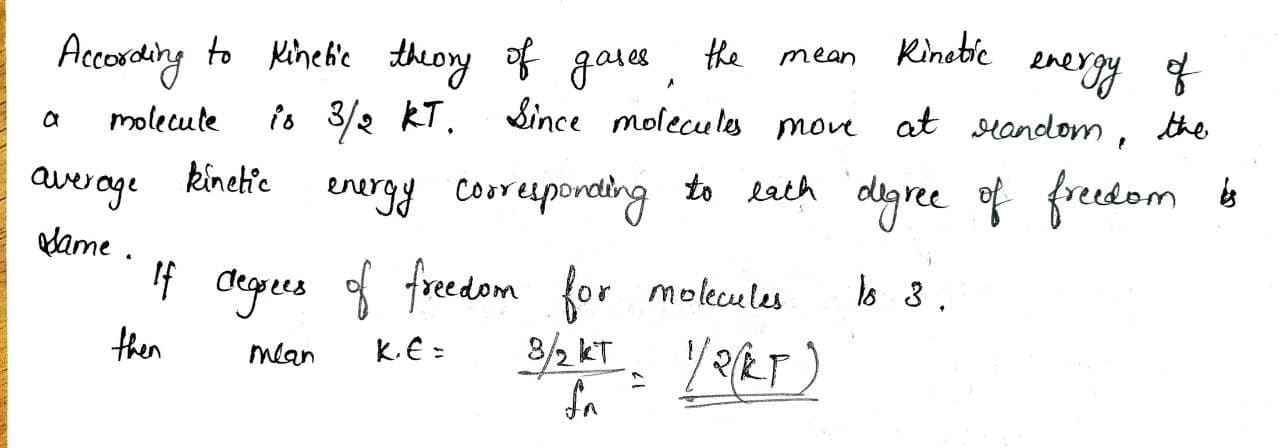 According to Kinetic theory of gases, the mean Kinetic energy of
a molecule is 3/2 kT. Since molecules move at random, the
average kinetic energy corresponding to each degree of freedom is
same.
If degrees of freedom for molecules is 3.
then mean K.E = 3/2 kT / fn = 1/2(kT)